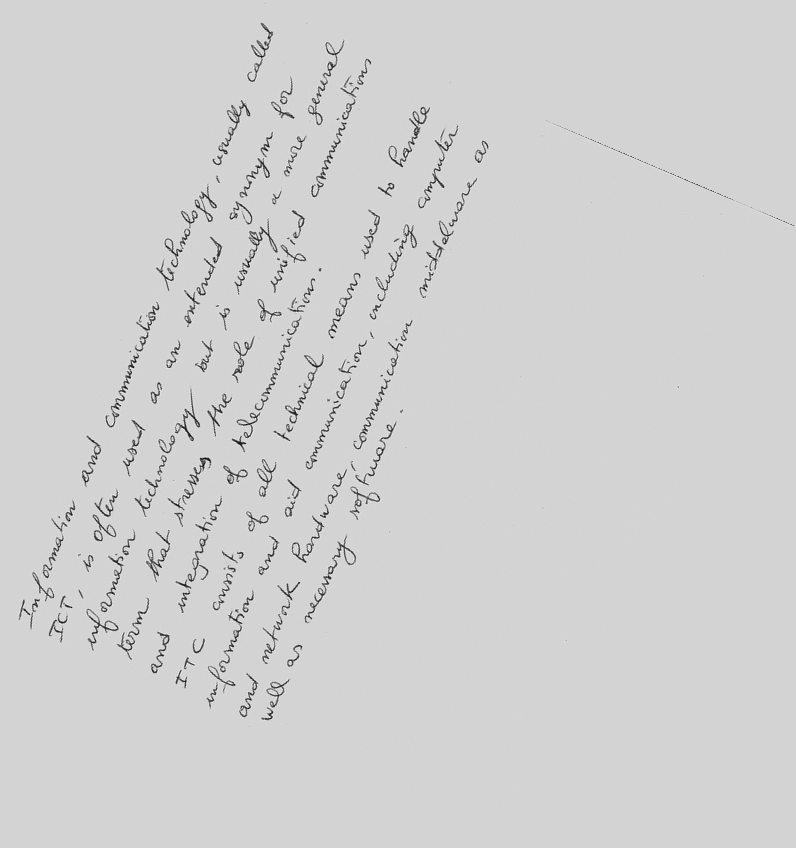 Information and communication technology, usually called
ICT, is often used as an intended synonym for
information technology but is usually a more general
term that stresses the role of unified communications
and integration of telecommunications.
ITC consists of all technical means used to handle
information and aid communication, including computer
and network hardware, communication middelware as
well as necessary software.